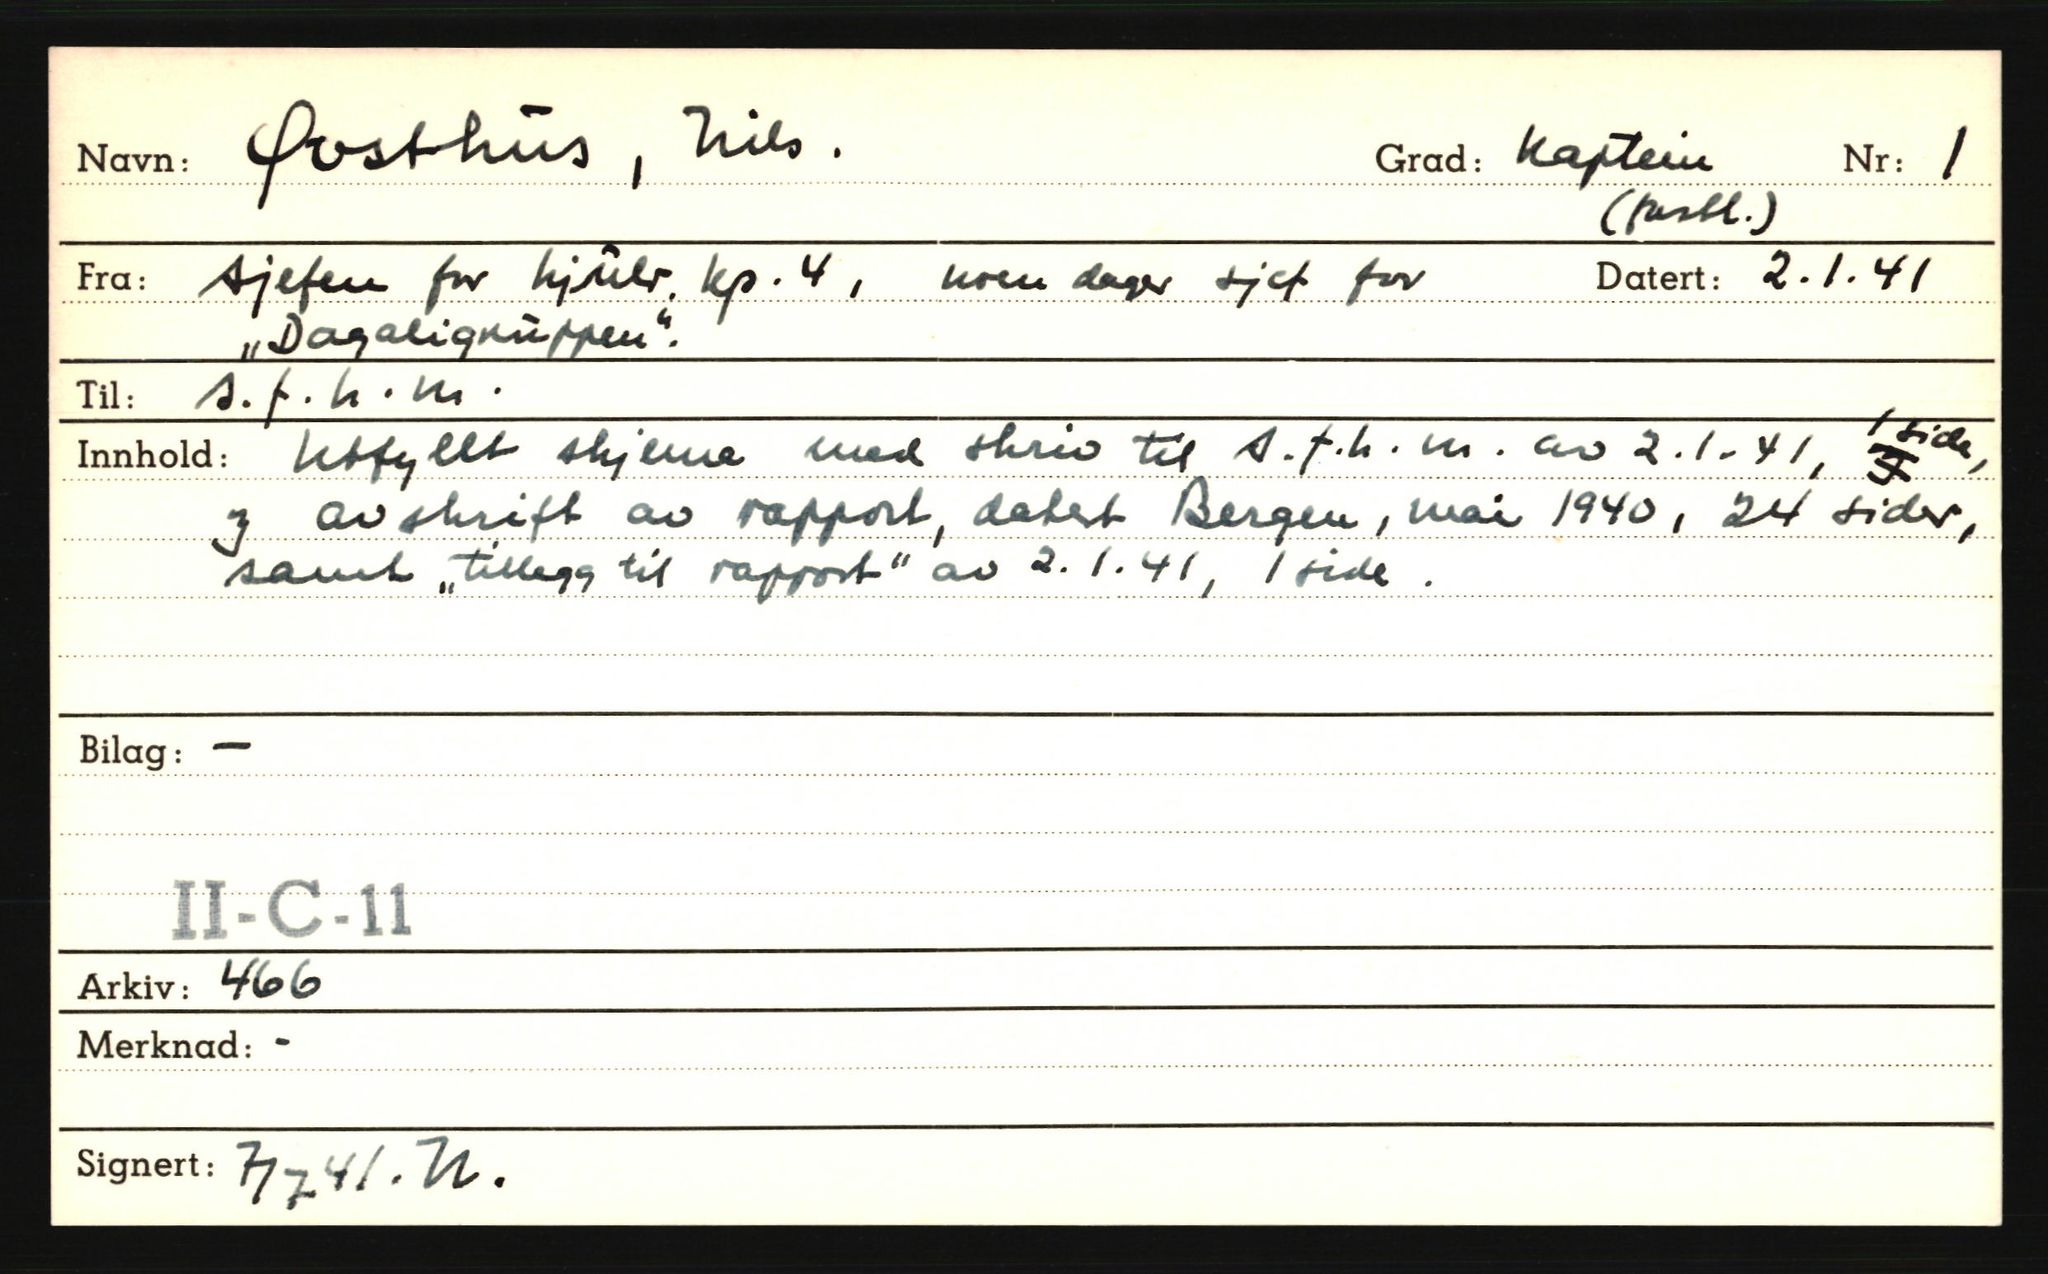 Navn: Øvsthus, Nils. Grad: Kaptein Nr: 1
Fra: Sjefen for hjulr. kp. 4, noen dager sjef for Datert: 2.1.41
„Dagaligruppen“.
Til: S.f.h.m.
Innhold: Utfyllt skjema med skriv til S.f.h.m. av 2.1.41, 1 side,
og avskrift av rapport, datert Bergen, mai 1940, 24 sider,
samt „tillegg til rapport“ av 2.1.41, 1 side.
Bilag: —
II-C-11
Arkiv: 466
Merknad: -
Signert: 7/7 41. N.